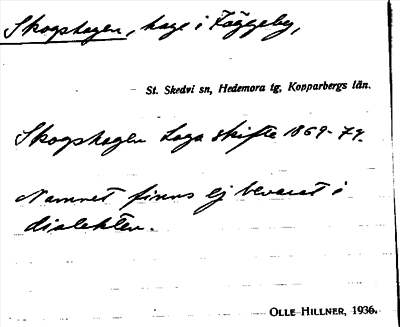 Skogshagen, hage i Fäggeby,
St. Skedvi sn, Hedemora tg, Kopparbergs län.
Skogshagen Laga skifte 1869-74.
Namnet finns ej bevarat i
dialekten.
OLLE HILLNER, 1936.